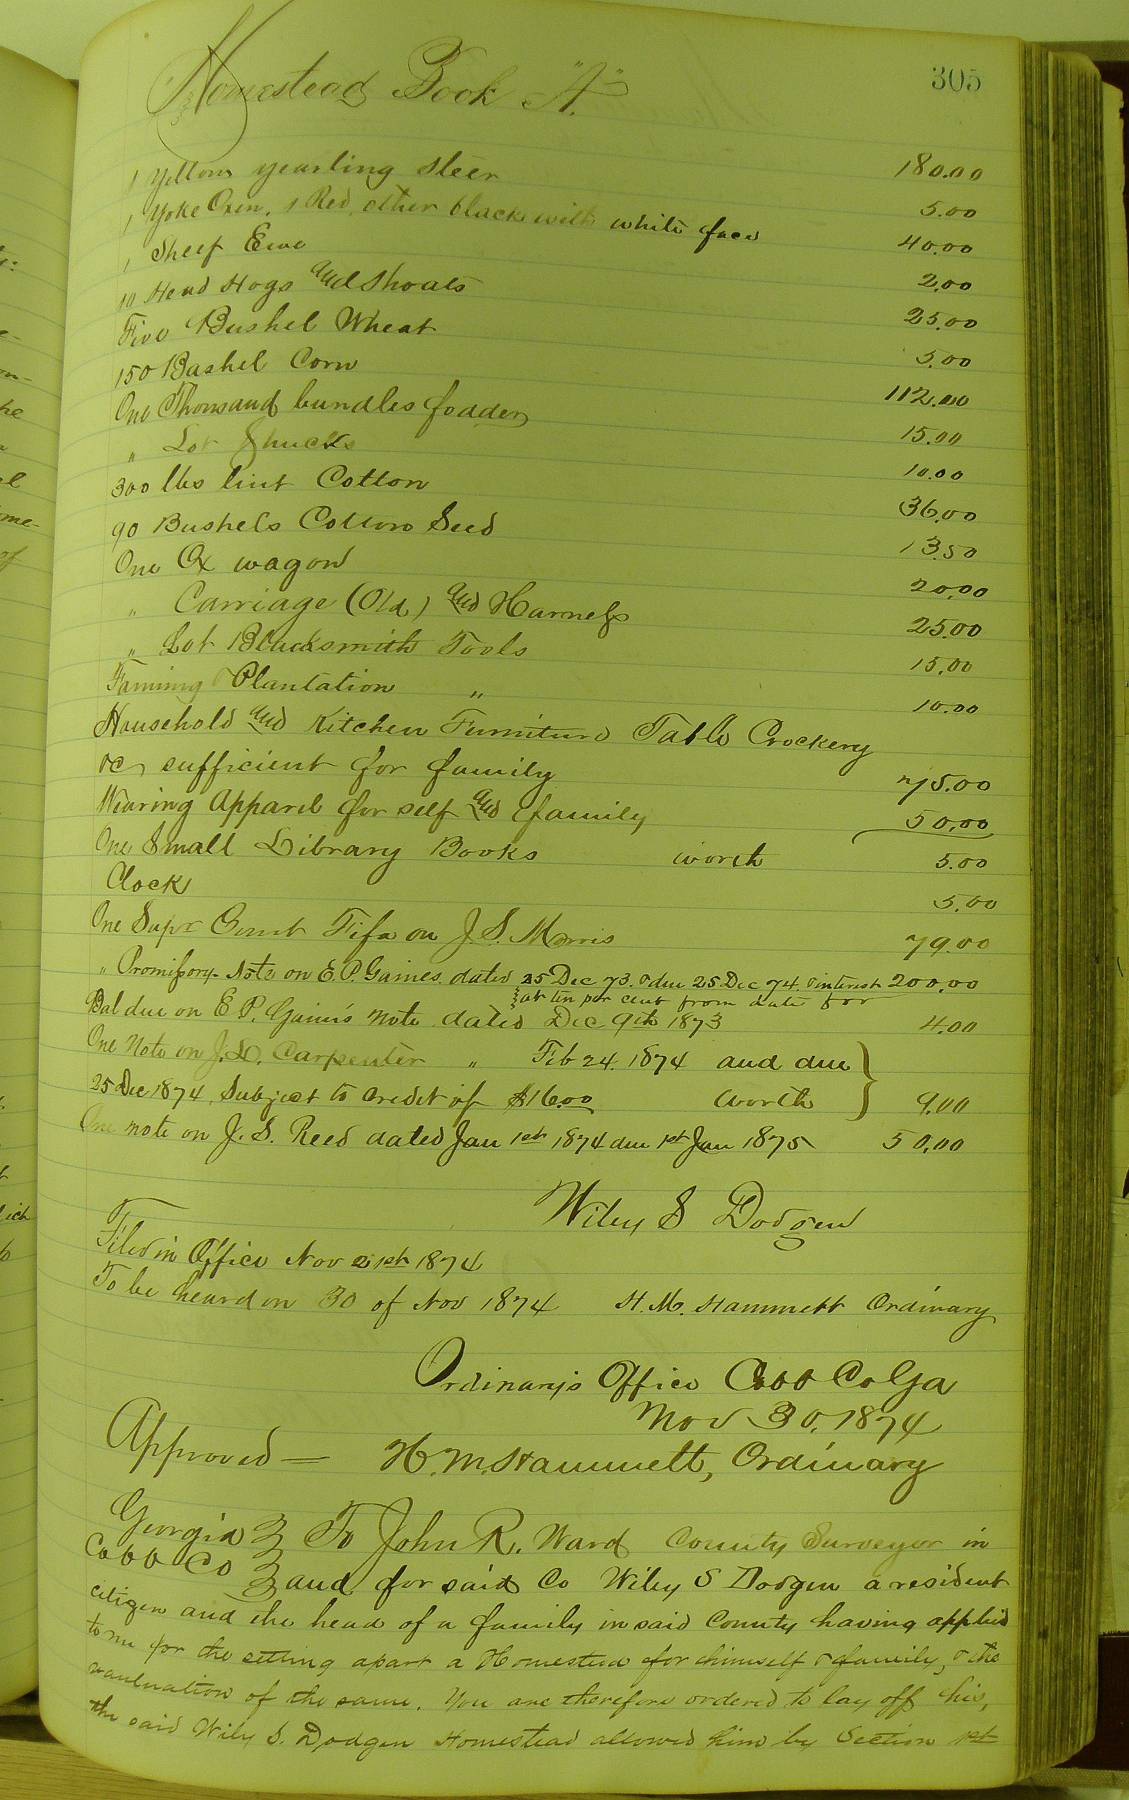 Homestead Book "A." 305
1 Yellow yearling steer 180.00
1 Yoke Oxen, 1 Red, other black with white face 5.00
1 Sheep Ewe 40.00
10 Head Hogs and Shoats 2.00
Five Bushel Wheat 25.00
150 Bushel Corn 5.00
One Thousand bundles fodder 112.00
" Lot Shucks 15.00
300 lbs lint Cotton 10.00
90 Bushels Cotton Seed 36.00
One Ox wagon 13.50
" Carriage (Old) and Harness 20.00
" Lot Blacksmith Tools 25.00
Faming Plantation " 15.00
10.00
Household and Kitchen Furniture Table Crockery
&c sufficient for family 75.00
Wearing Apparel for self and family 50.00
One Small Library Books worth 5.00
Clock 5.00
One Supr Court Fifa on J. S. Morris 79.00
" Promissory Note on E. P. Gaines dated 25 Dec 73. & due 25 Dec 74. & interest 200.00
at ten per cent from date for
Bal due on E P. Gaines note dated Dec 9th 1873 4.00
One Note on J. D. Carpenter " Feb 24. 1874 and due
25 Dec 1874, Subject to credit of $16.00 worth 9.00
One note on J. S. Reed dated Jan 1st 1874 due 1st Jan 1875 50.00
Wiley S Dodgen
Filed in Office Nov 21st 1874
To be heard on 30 of Nov 1874 H. M. Hammett Ordinary
Ordinary's Office Cobb Co Ga
Nov 30, 1874
Approved — H. M. Hammett, Ordinary
Georgia } To John R. Ward County Surveyor in
Cobb Co } and for said Co Wiley S Dodgen a resident
citizen and the head of a family in said County having applied
to me for the setting apart a Homestead for himself & family, & the
valuation of the same. You are therefore ordered to lay off his,
the said Wiley S. Dodgen Homestead allowed him by Section 1st